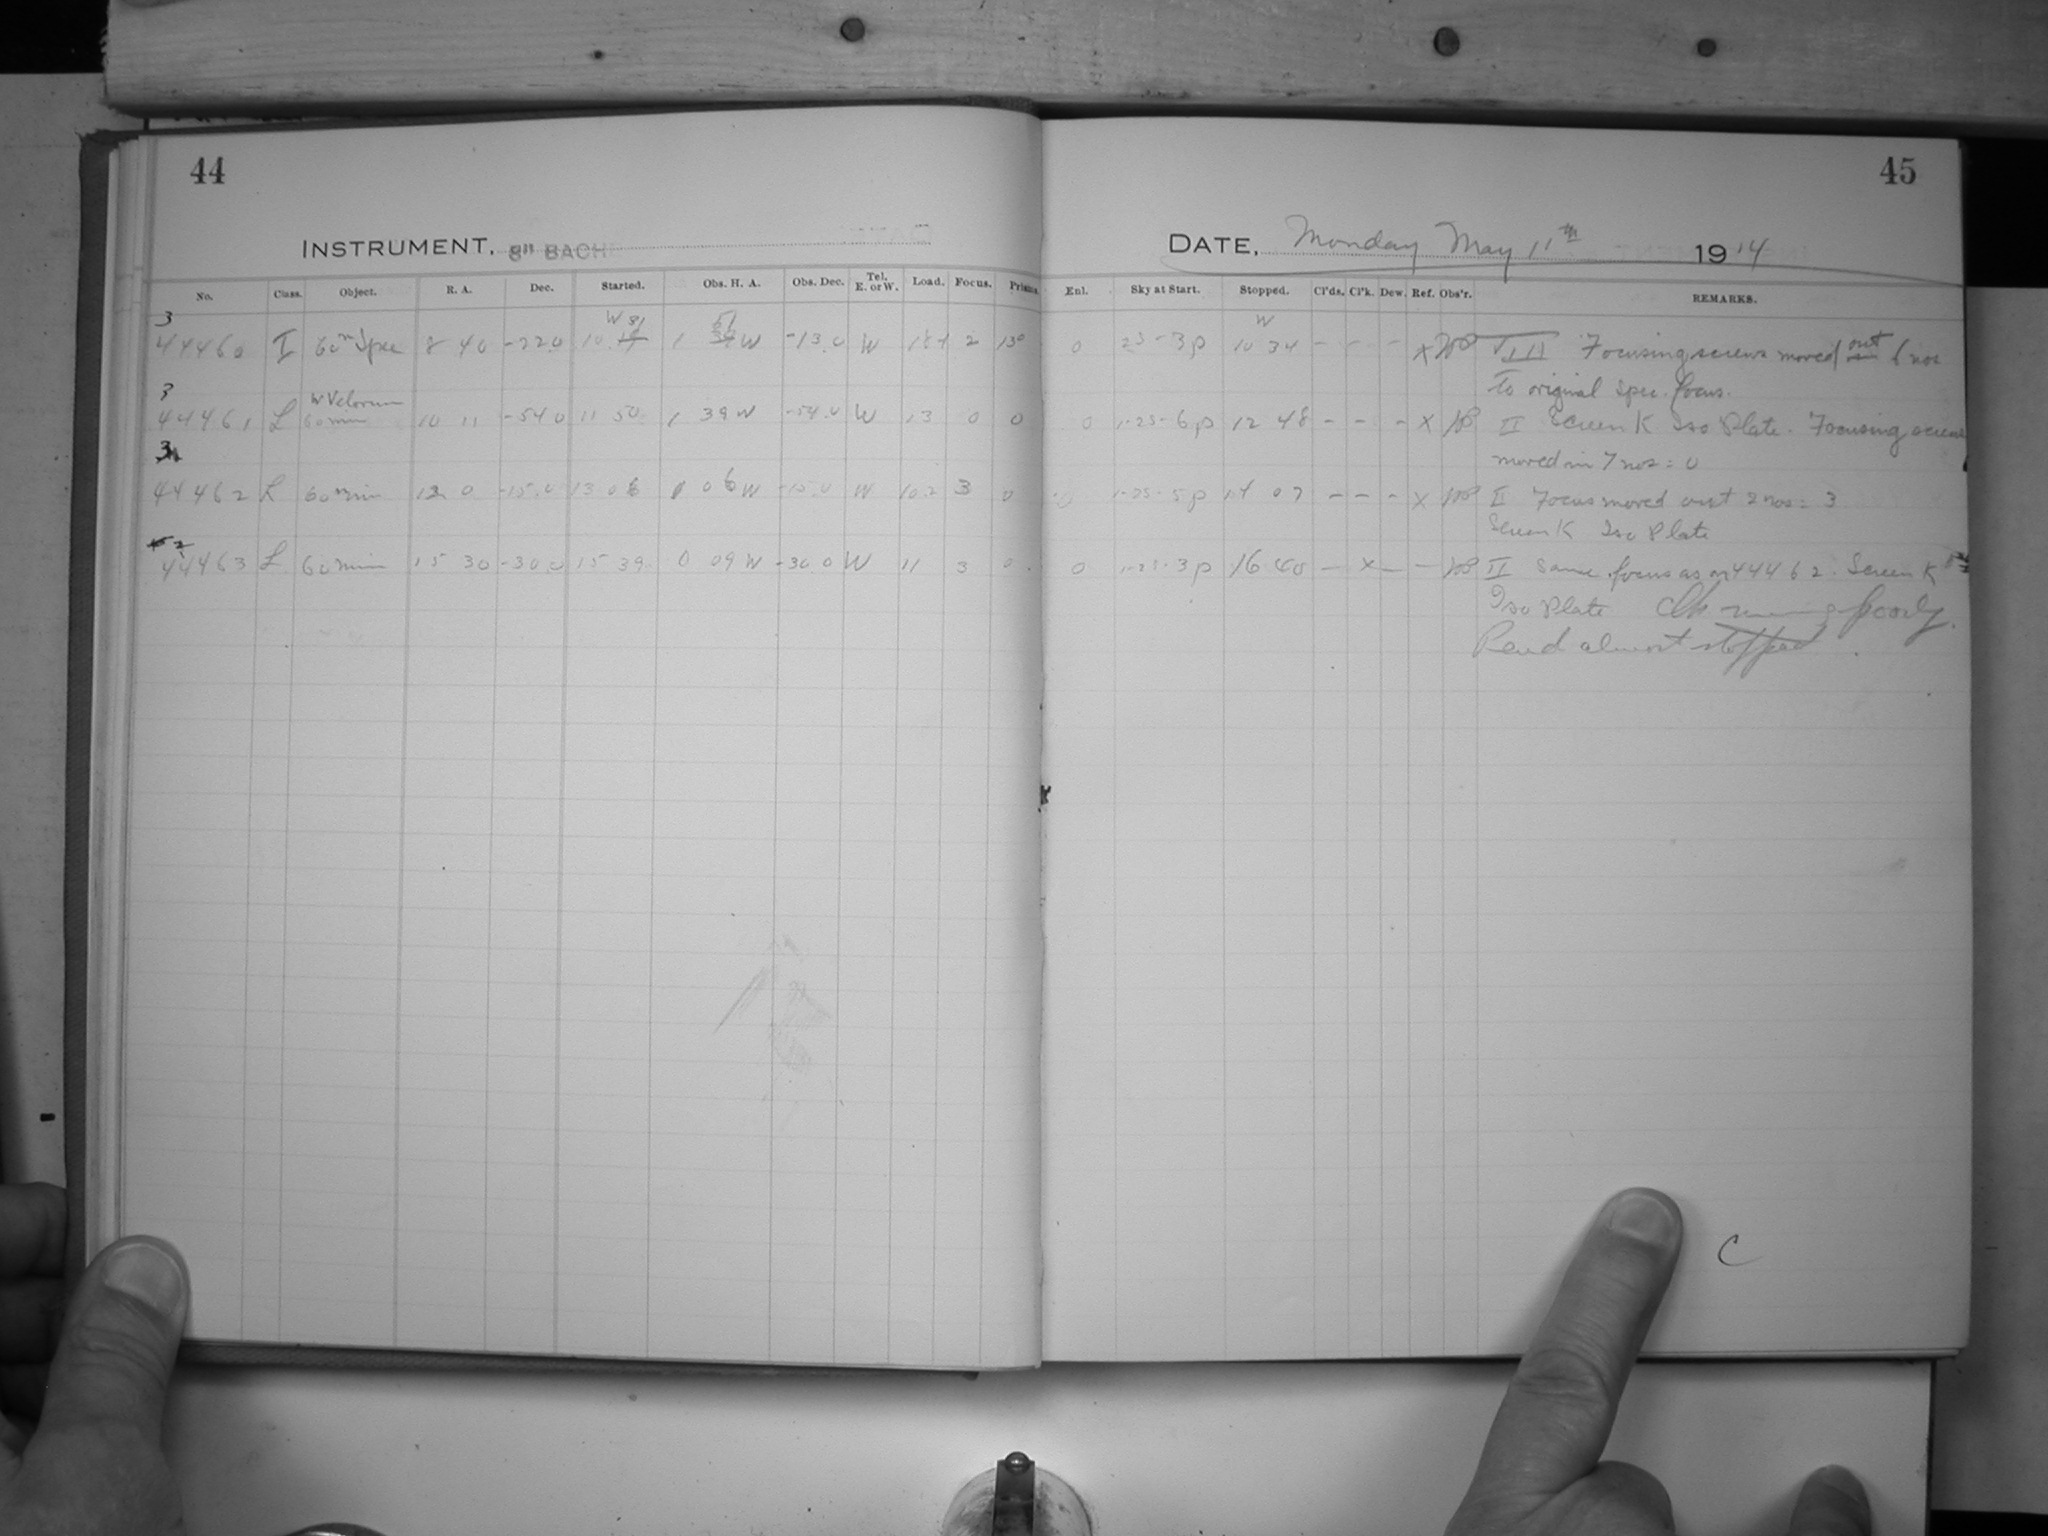 44
45
INSTRUMENT, 8" BACHE
DATE, Monday May 11th 1914
No. Class. Object. R. A. Dec. Started. Obs. H. A. Obs. Dec. Tel. E. or W. Load. Focus. Prisms
Enl. Sky at Start. Stopped. Cl'ds. Cl'k. Dew. Ref. Obs'r. REMARKS.
3 W W
44460 I 60m Spec 8 40 -22.0 10 1 51 W -13.0 W 2 13° 0 25-3p 10 34 - - - x Focusing screws moved out 6 nos
to original spec. focus.
3 W Velorum
44461 L 60 min 10 11 -54.0 11 50 1 39 W -54.0 W 13 0 0 0 1-25-6p 12 48 - - - x II Screen K Iso Plate. Focusing screws
moved in 7 nos = 0
3
44462 L 60 min 12 0 -15.0 13 06 1 06 W -15.0 W 10.2 3 0 0 1-25-5p 14 07 - - - x II Focus moved out 2 nos = 3
Screen K Iso Plate
2
44463 L 60 min 15 30 -30.0 15 39 0 09 W -30.0 W 11 3 0 0 1-25-3p 16 40 - x - - II Same focus as on 44462. Screen K
Iso Plate Clk running poorly.
Pend almost stopped.
C